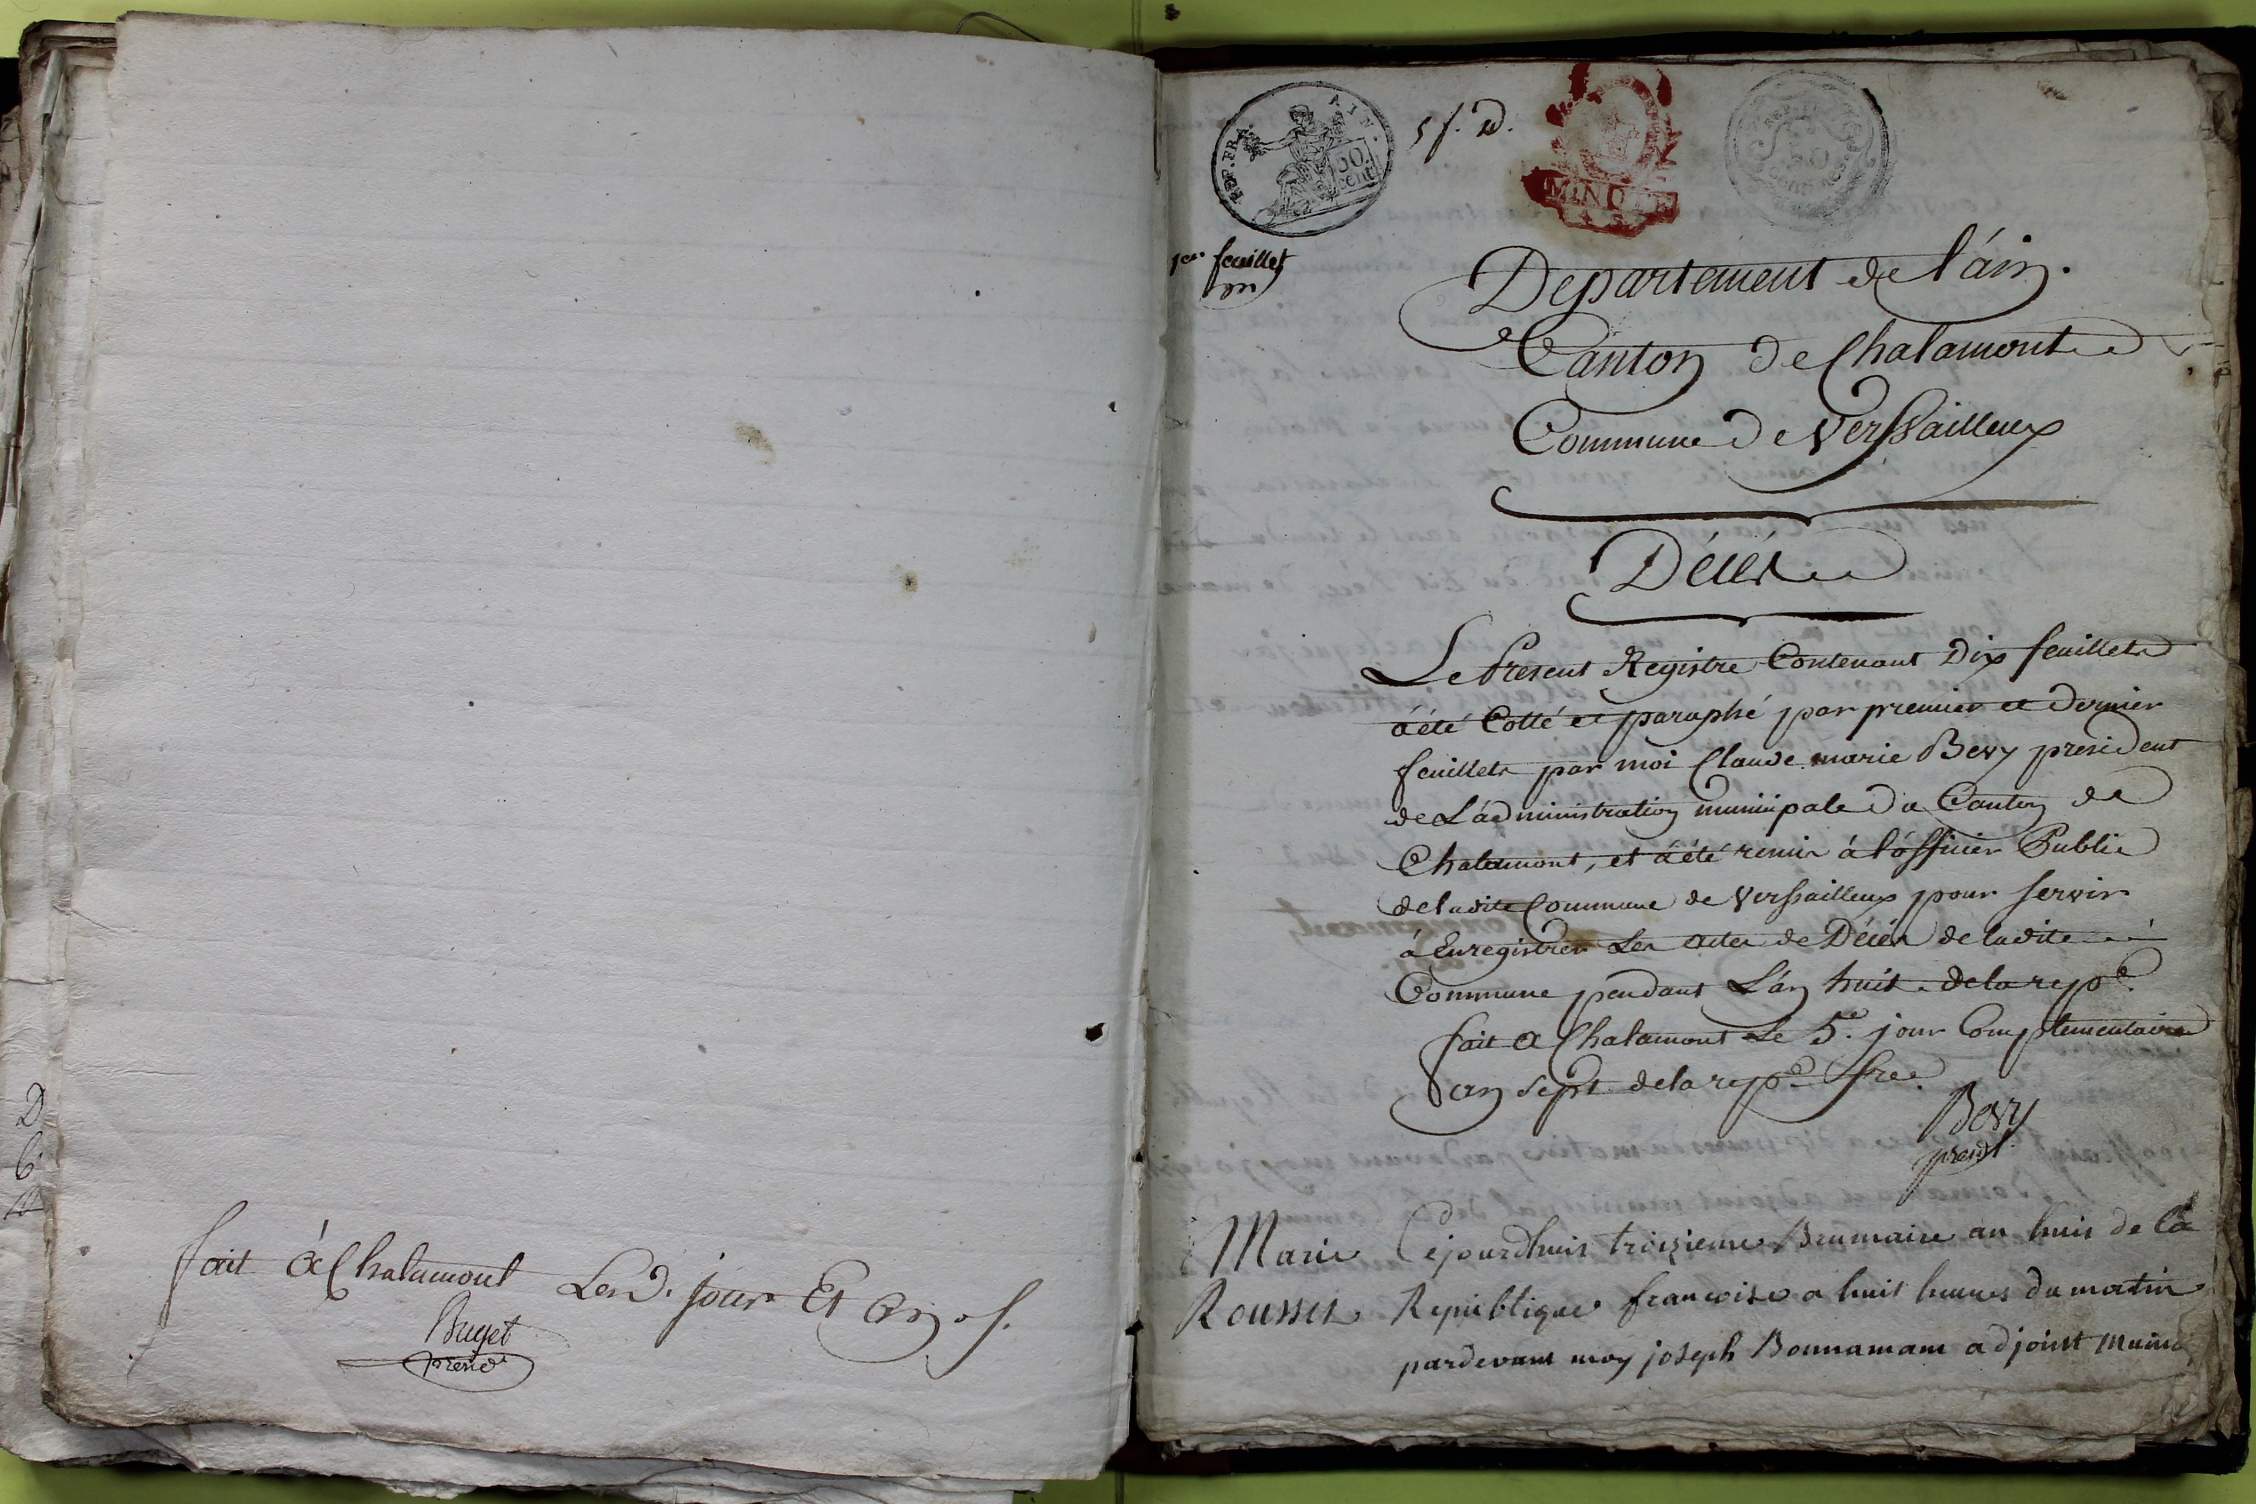 fait à Chalamont Lesd. jour Et an s.
Buget
presid.
REP. FRA. AIN.
50. cent
5 f. D.
MINUTE
50
centimes
1er. feuillet
Departement de l'áin.
Canton de Chalamont
Commune de Verssailleux
Décés
Le Present Registre Contenant Dix feuillets
á été Cotté et paraphé par premier et dernier
feuillets par moi Claude marie Bevy president
de L'ádministration municipale du Canton de
Chalamont, et á été remis á l'officier Public
de ladite Commune de Verssailleux pour servir
á Enregistrer Les actes de Décés de ladite
Commune pendant L'an huit de la repe.
fait a Chalamont Le 5e. jour Complementaire
an sept de la repe. fre.
Bevy
presdt.
Marie Cejourdhuis troizieme Brumaire an huis de la
Rousset Republique francoise a huit heures du matin
pardevant moy joseph Bonnamam adjoint munici